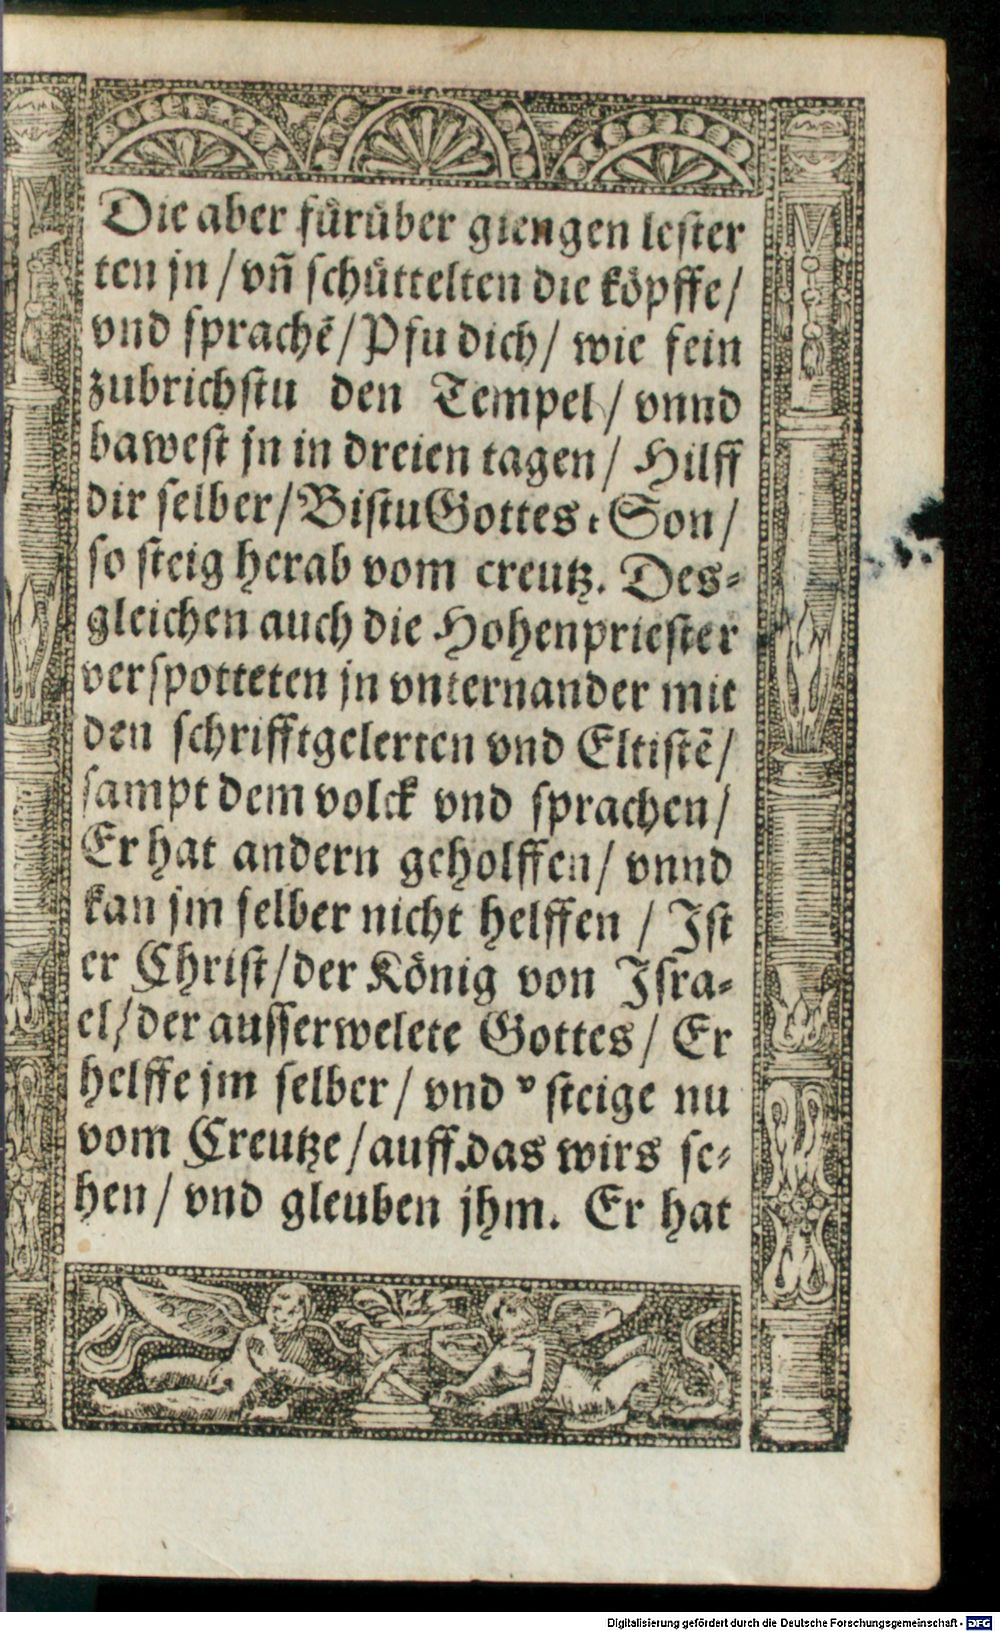 Die aber fürüber giengen lester
ten jn / vñ schüttelten die köpffe /
vnd sprachē / Pfu dich / wie fein
zubrichstu den Tempel / vnnd
bawest jn in dreien tagen / Hilff
dir selber / Bistu Gottes Son /
so steig herab vom creutz. Des-
gleichen auch die Hohenpriester
verspotteten jn vnternander mit
den schrifftgelerten vnd Eltistē /
sampt dem volck vnd sprachen /
Er hat andern geholffen / vnnd
kan jm selber nicht helffen / Ist
er Christ / der König von Isra-
el / der ausserwelete Gottes / Er
helffe jm selber / vnd steige nu
vom Creutze / auff das wirs se-
hen / vnd gleuben jhm. Er hat
Digitalisierung gefördert durch die Deutsche Forschungsgemeinschaft - DFG